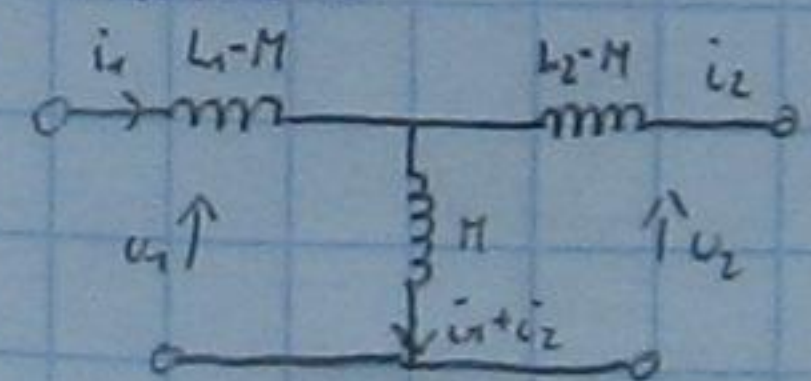 i₁ L₁-M L₂-M i₂
u₁ M u₂
i₁+i₂